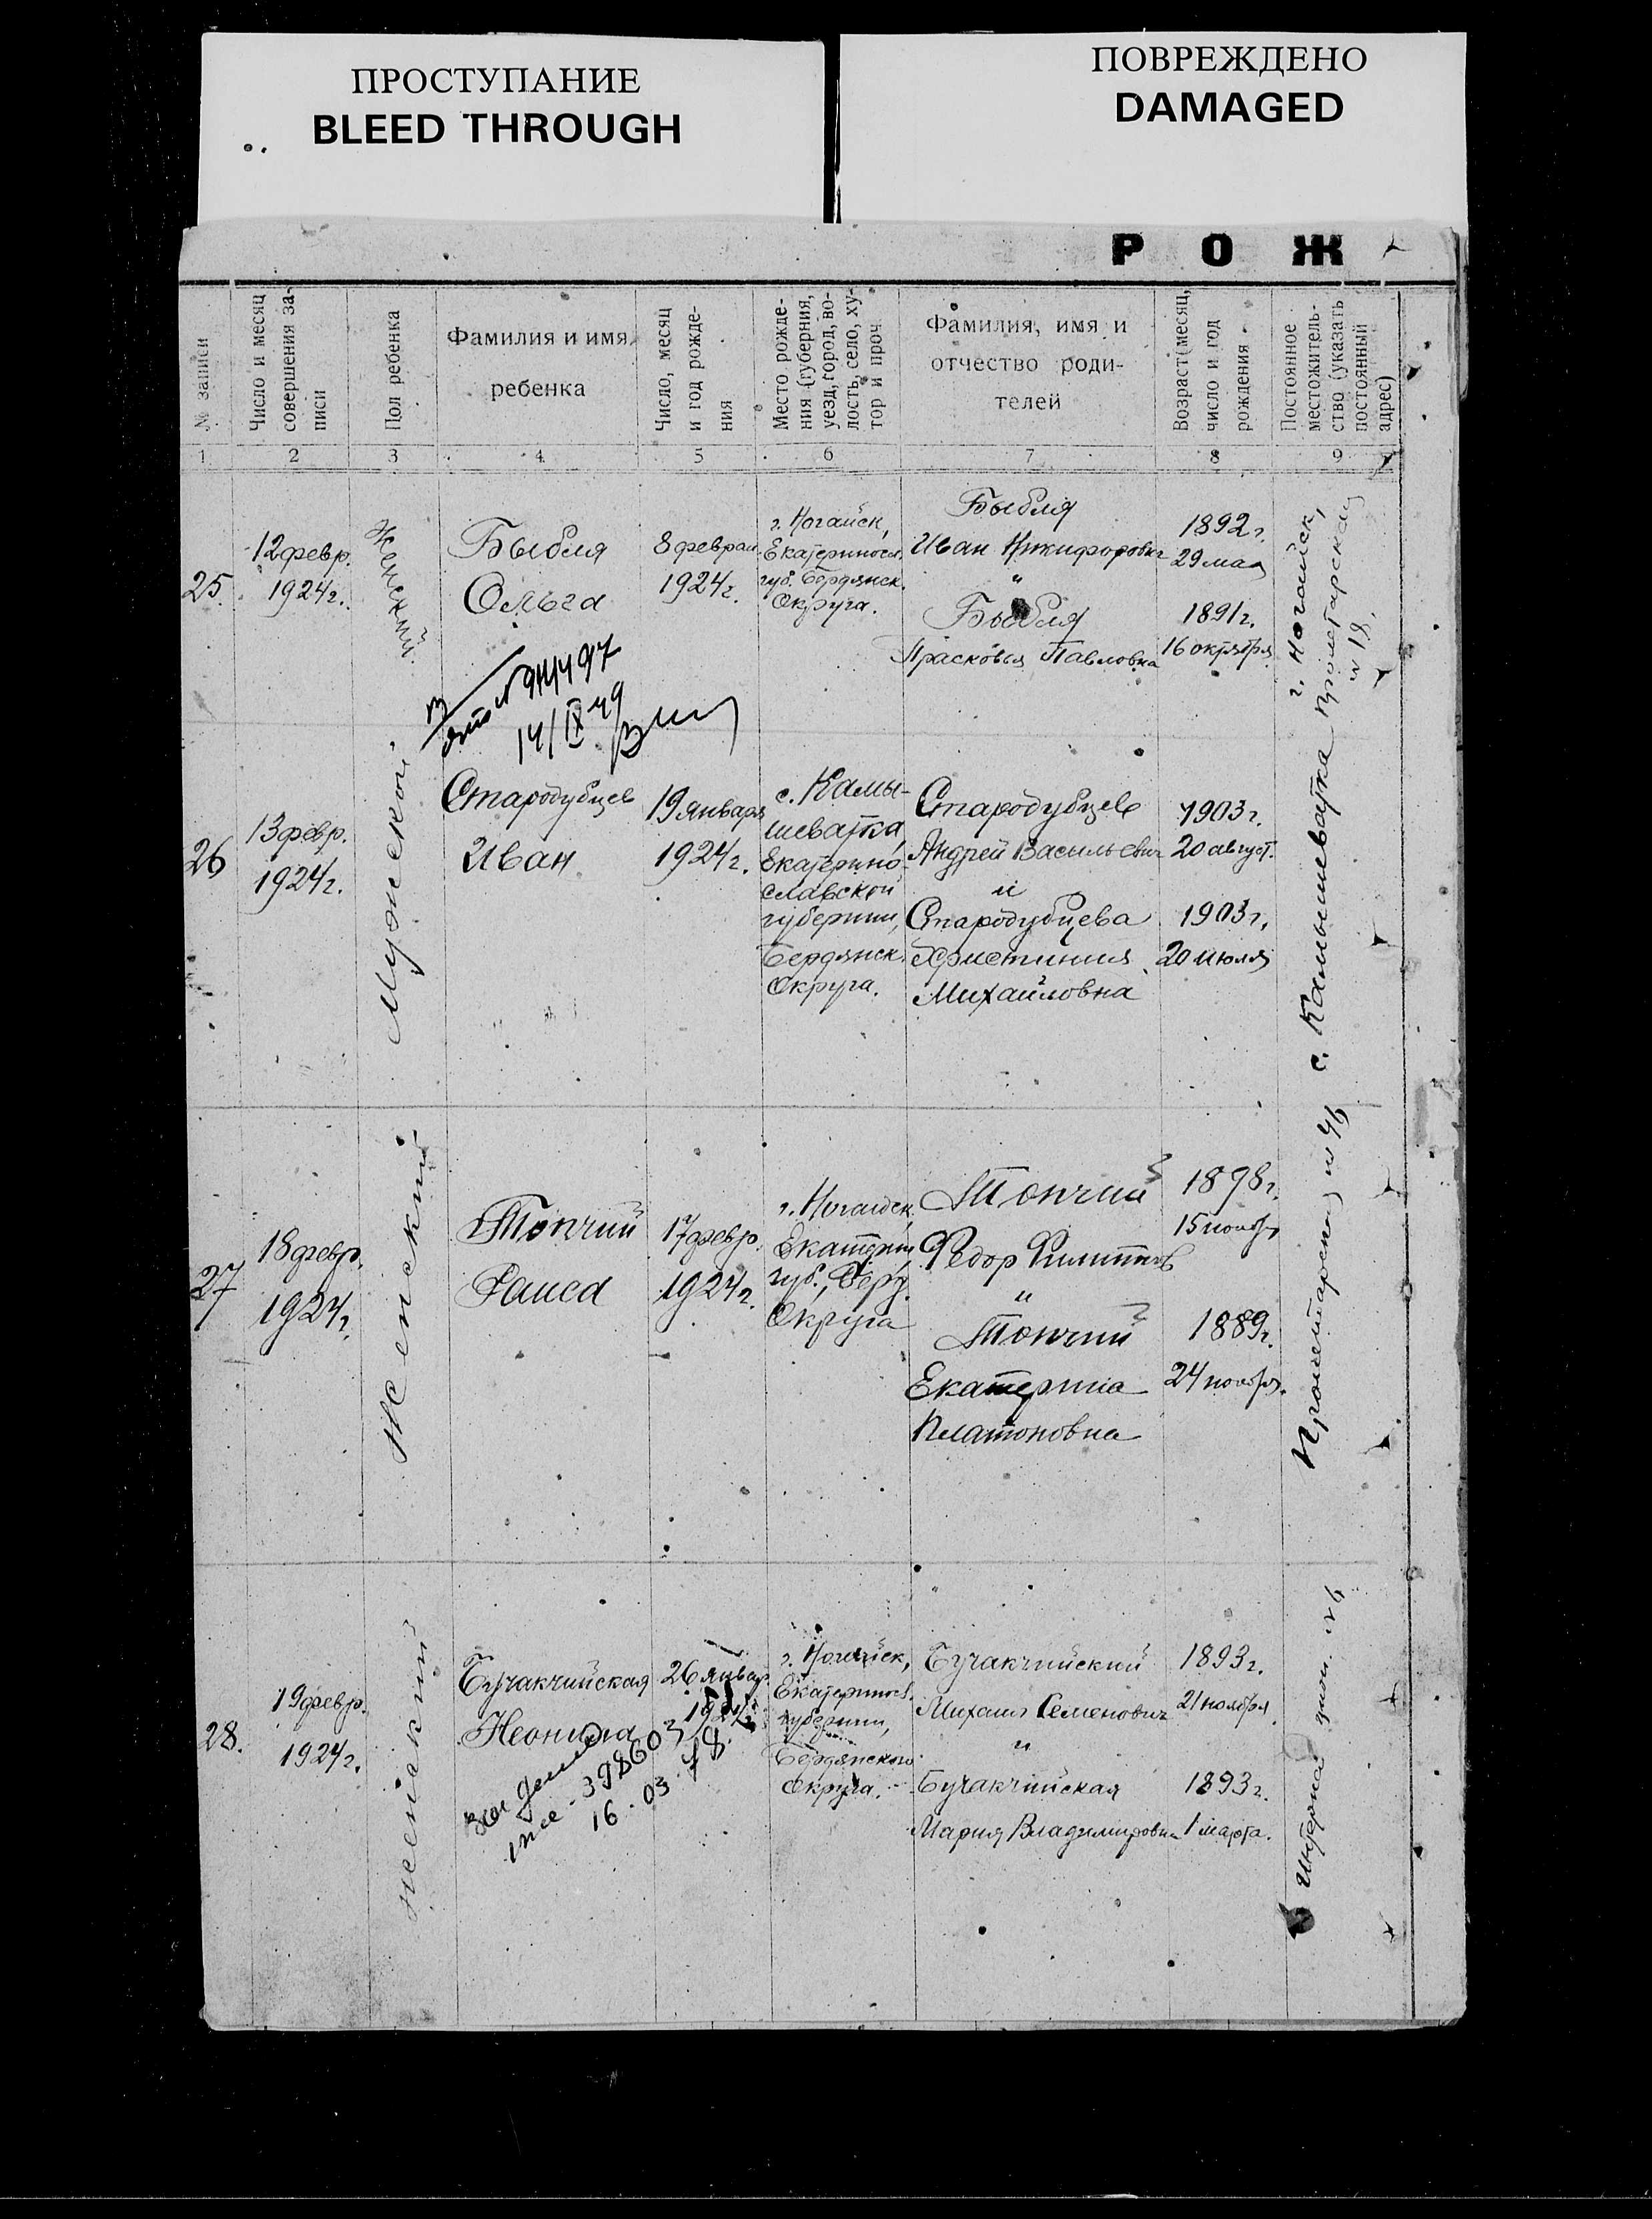 ПРОСТУПАНИЕ
BLEED THROUGH
ПОВРЕЖДЕНО
DAMAGED
Р О Ж
№ записи
Число и месяц
совершения за-
писи
Пол ребенка
Фамилия и имя
ребенка
Число, месяц
и год рожде-
ния
Место рожде-
ния (губерния,
уезд, город, во-
лость, село, ху-
тор и проч
Фамилия, имя и
отчество роди-
телей
Возраст (месяц,
число и год
рождения
Постоянное
местожитель-
ство (указать
постоянный
адрес)
1 2 3 4 5 6 7 8 9
25.
12 февр.
1924 г.
Женский
Быбля
Ольга
8 феврал
1924 г.
г. Ногайск,
Екатеринос.
губ. Бердянск.
Округа.
Быбля
Иван Никифорович
"
Быбля
Прасковья Павловна
1892 г.
29 мая
1891 г.
16 октября
г. Ногайск,
Пролетарская
№ 18.
14/IX 49
26
13 февр.
1924 г.
Мужской
Стародубцев
Иван
19 января
1924 г.
с. Камы-
шеватка,
Екатерино-
славской
губернии,
Бердянск.
Округа.
Стародубцев
Андрей Васильевич
и
Стародубцева
Христиния
Михайловна
1903 г.
20 август.
1903 г.
20 июля
с. Камышеватка
27
18 февр.
1924 г.
Женский
Топчий
Раиса
17 февр.
1924 г.
г. Ногайск,
Екатерин
губ., Берд.
Округа
Топчий
Федор Филиппов
"
Топчий
Екатерина
Платоновна
1898 г.
15 ноябр
1889 г.
24 ноября.
Пролетарская № 46
28.
19 февр.
1924 г.
Женский
Бучакчийская
Неонила
26 январ.
1924 г.
г. Ногайск,
Екатеринос.
губернии,
Бердянского
Округа.
Бучакчийский
Михаил Семенович
"
Бучакчийская
Мария Владимировна
1893 г.
21 ноября
1893 г.
1 марта.
№ 6
398603
16.03.48.